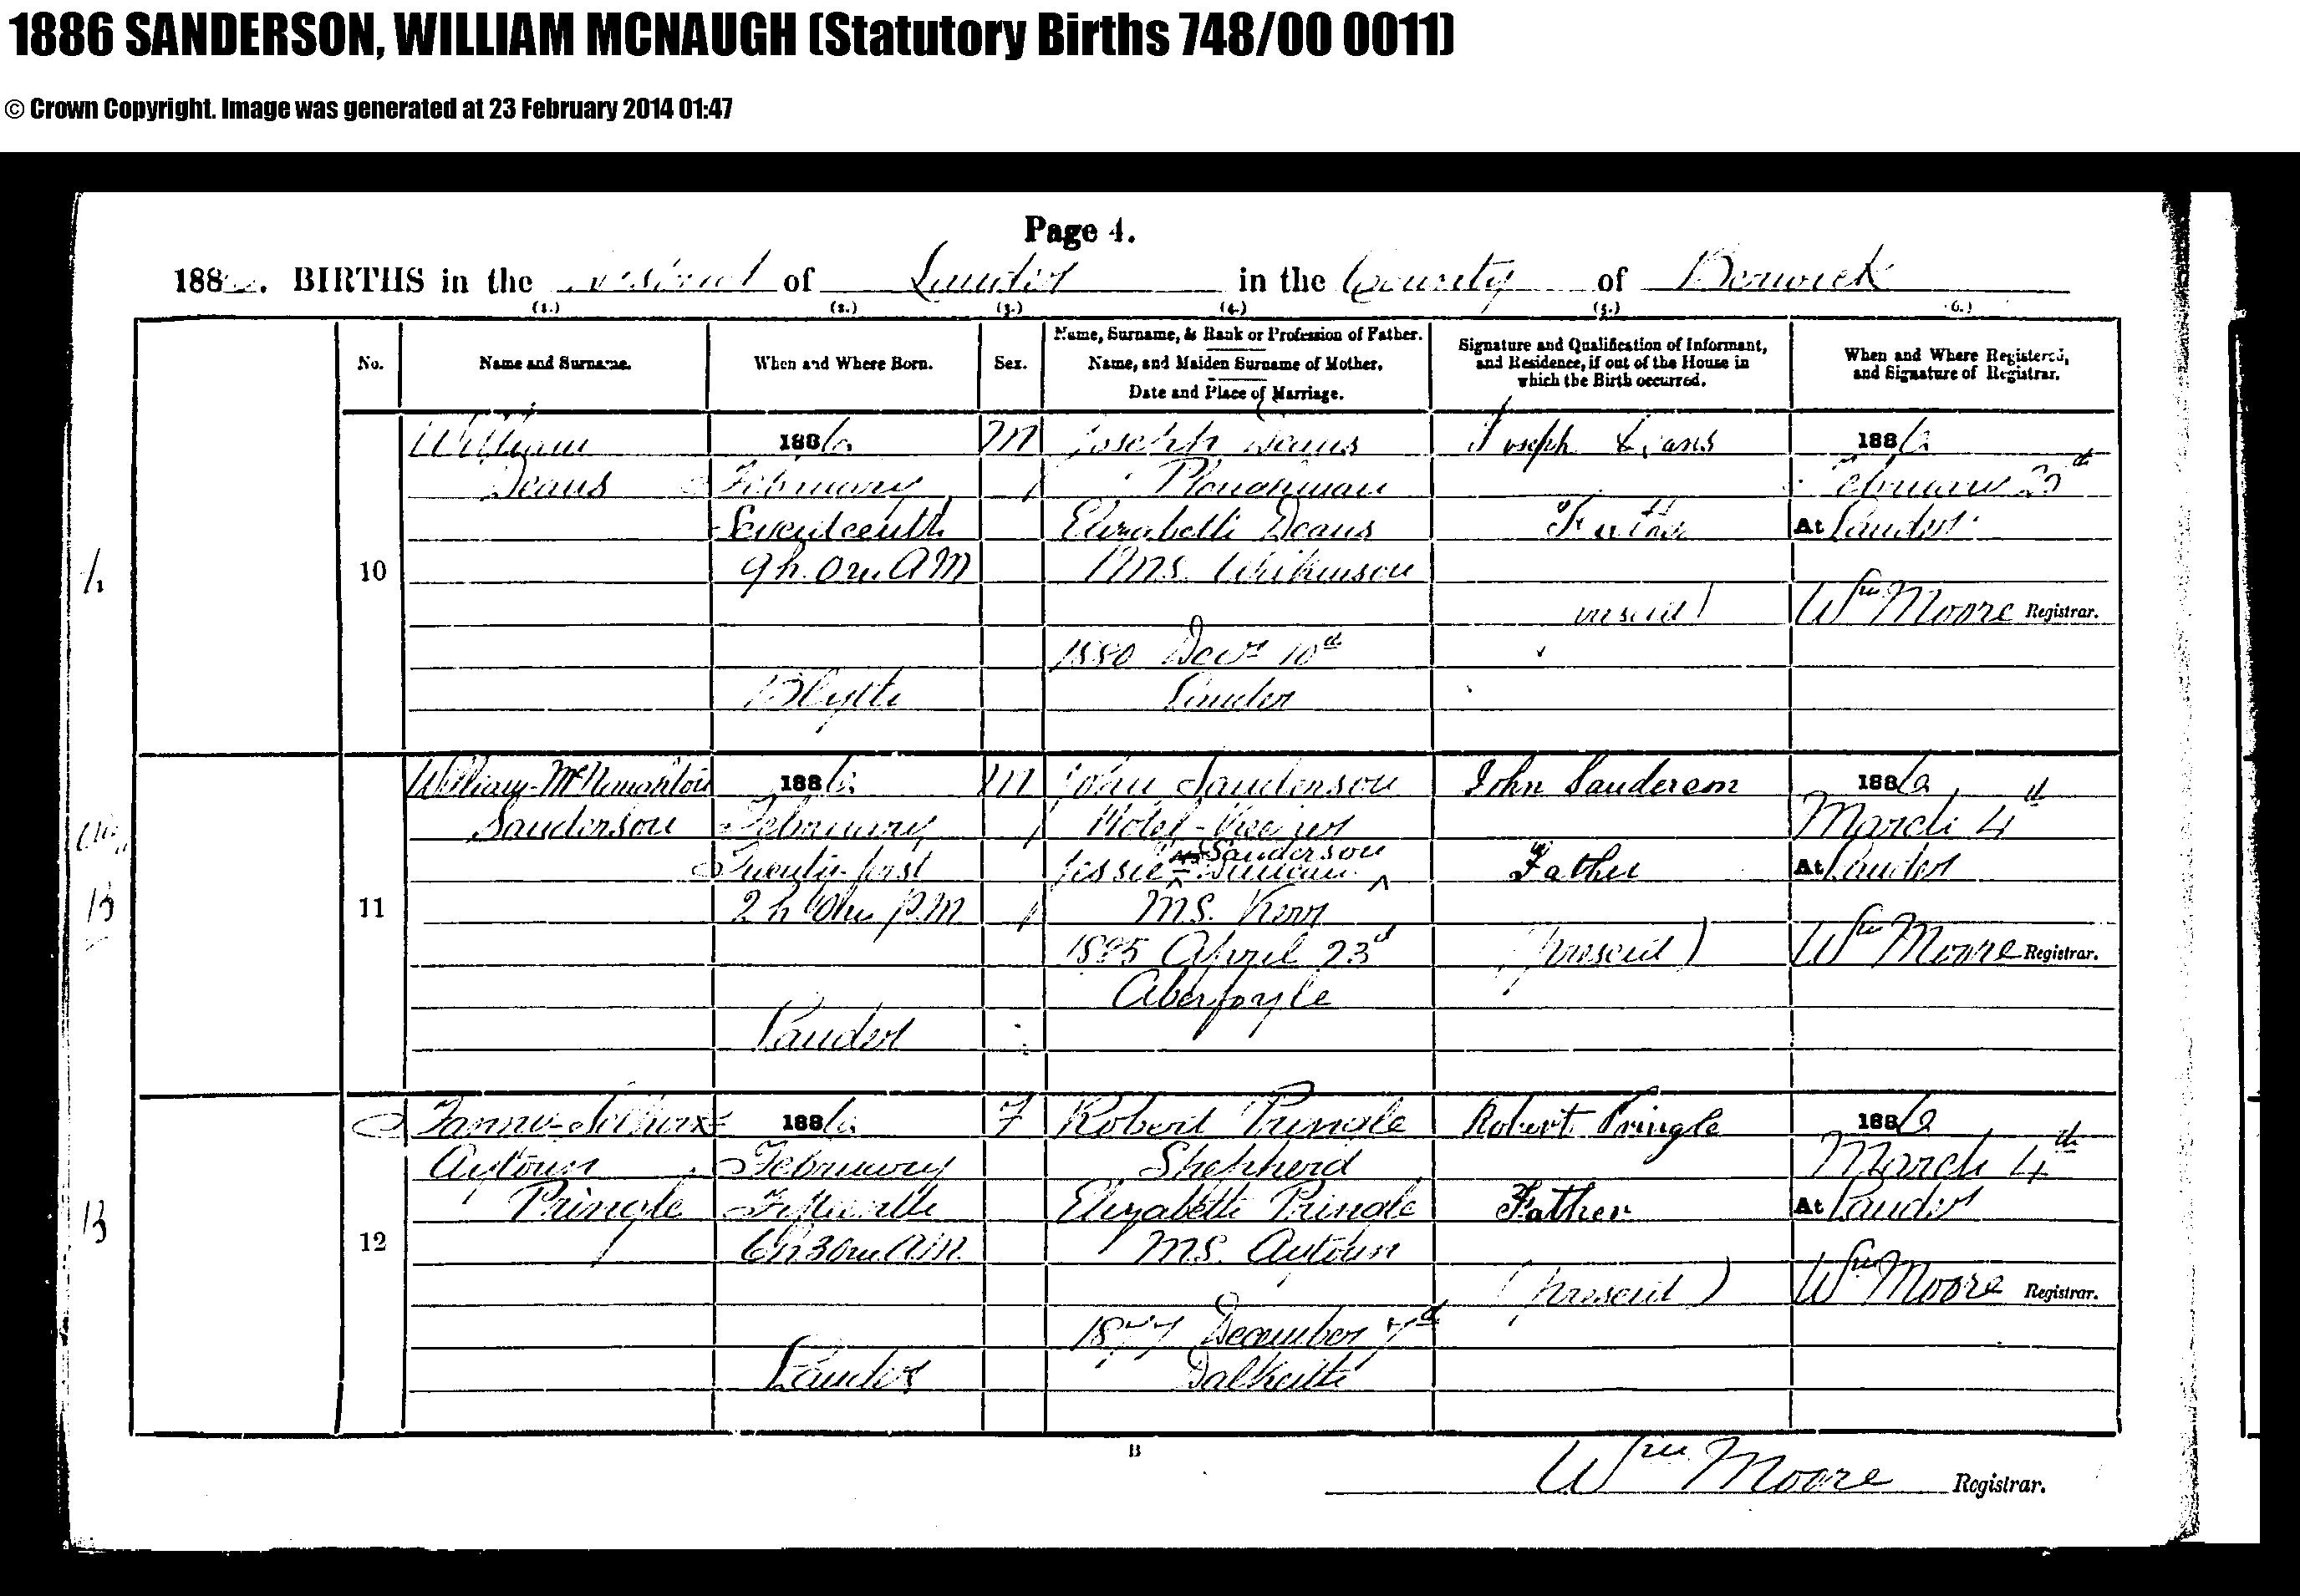 1886 SANDERSON, WILLIAM MCNAUGH (Statutory Births 748/00 0011)
© Crown Copyright. Image was generated at 23 February 2014 01:47
Page 4.
188 . BIRTHS in the of Lauder in the County of Berwick
(1.) (2.) (3.) (4.) (5.) 6.)
No.
Name and Surname.
When and Where Born.
Sex.
Name, Surname, & Rank or Profession of Father.
Name, and Maiden Surname of Mother.
Date and Place of Marriage.
Signature and Qualification of Informant,
and Residence, if out of the House in
which the Birth occurred.
When and Where Registered,
and Signature of Registrar.
10
William
Deans
1886
February
Seventeenth
9h. 0m. AM
Blythe
M
Joseph Deans
Ploughman
Elizabeth Deans
M.S. Wilkinson
1880 Decr 10th
Lauder
Joseph Deans
Father
present)
1886
February
At Lauder
Wm Moore Registrar.
11
William McNaughton
Sanderson
1886
February
Twenty first
2h PM
Lauder
M
John Sanderson
Hotel-Keeper
Jessie Sanderson
Duncan
M.S. Kerr
1885 April 23d
Aberfoyle
John Sanderson
Father
(present)
1886
March 4th
At Lauder
Wm Moore Registrar.
12
Aytoun
Pringle
1886
February
Fifteenth
6h 30m. A.M.
Lauder
F
Robert Pringle
Shepherd
Elizabeth Pringle
M.S. Aytoun
1877 December 7th
Dalkeith
Robert Pringle
Father
(present)
1886
March 4th
At Lauder
Wm Moore Registrar.
B
Wm Moore Registrar.